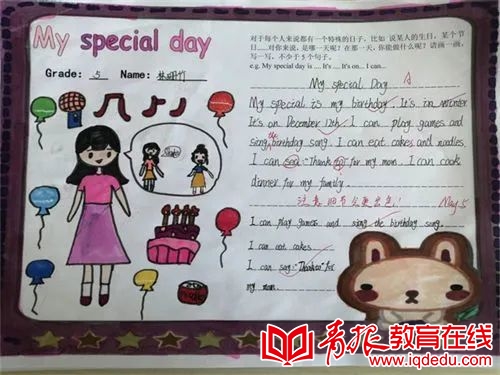 My special day
Grade: 5 Name:
对于每个人来说都有一个特殊的日子，比如 说某人的生日，某个节
日......对你来说，是哪一天呢？在那一天，你能做什么呢？请画一画，
写一写，不少于5个句子。
e.g. My special day is .... It's ... It's on... I can...
My special Day A
My special is my birthday. It's in winter
It's on December 12th. I can play games and
sing the birthday song. I can eat cakes and noodles.
I can say: "Thank for my mom. I can cook
dinner for my family.
注意细节会更出色!
May.5
I can play games and sing the birthday song.
I can eat cakes.
I can say: for
my mom.
青报教育在线
www.iqdedu.com